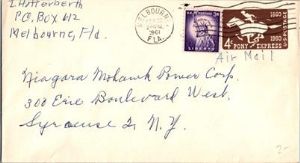 I. Hotterbeth
P.O. Box 612
Melbourne, Fla.
MELBOURNE
1961
FLA.
LIBERTY
1860
1960
4¢
PONY EXPRESS
U.S. POSTAGE
Air Mail
Niagara Mohawk Power Corp.
300 Erie Boulevard West.
Syracuse 2, N.Y.